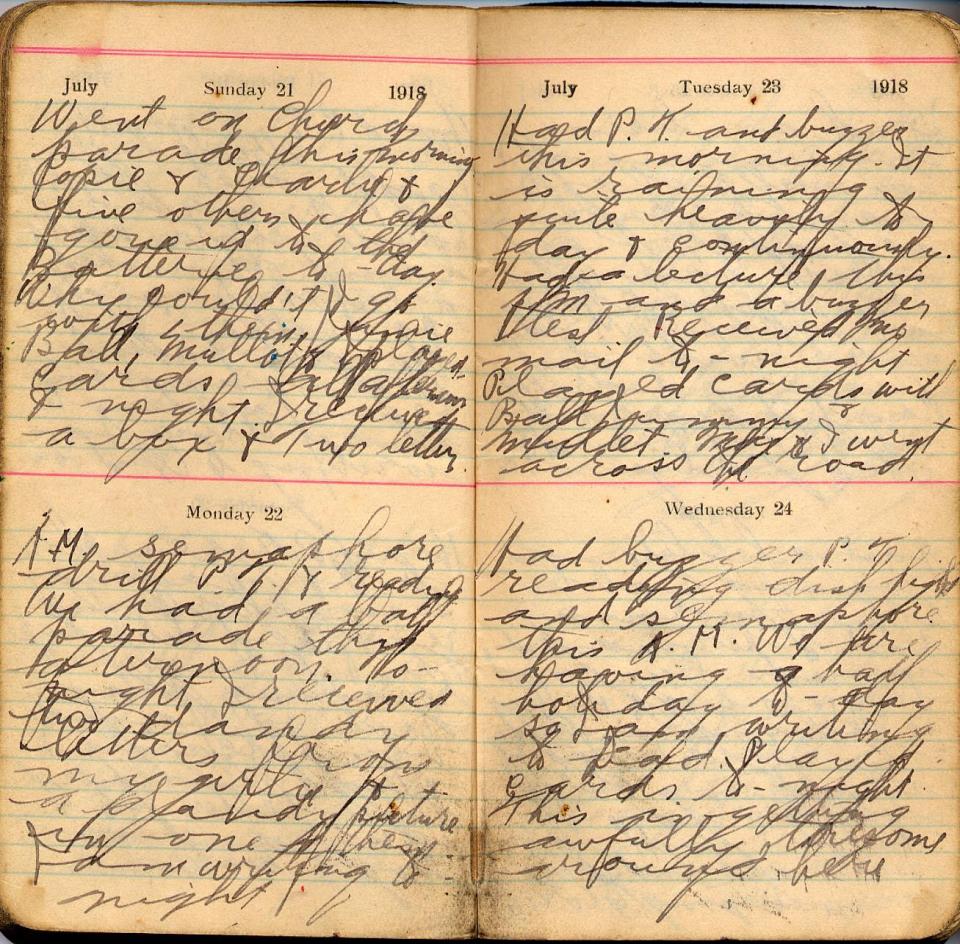 July Sunday 21 1918
Went on Church
parade this morning
Topie & Charlie &
five others have
gone up to the
Batterie to-day.
Why couldn't I go
with them. Topie
Ball, Mullett & I played
cards afternoon
& night. I received
a box & Two letters.
Monday 22
A.M. semaphore
drill P. T. & reading
We had a bath
parade this
afternoon. To-
night I received
two dandy
letters from
my girlie &
a dandy picture
in one of them
I am writing to-
night
July Tuesday 23 1918
Had P. T. and buzzer
this morning. It
is raining
quite heavily to
day & continuously.
Had a lecture this
P.M. and a buzzer
test. Received no
mail to-night
Played cards with
Ball &
Mullet & I went
across the road.
Wednesday 24
Had buzzer P. T.
reading disk, flag
and semaphore
this A.M. We are
having a half
holiday to-day
so I am writing
to Dad. Played
cards to-night.
This is getting
awfully lonesome
around here